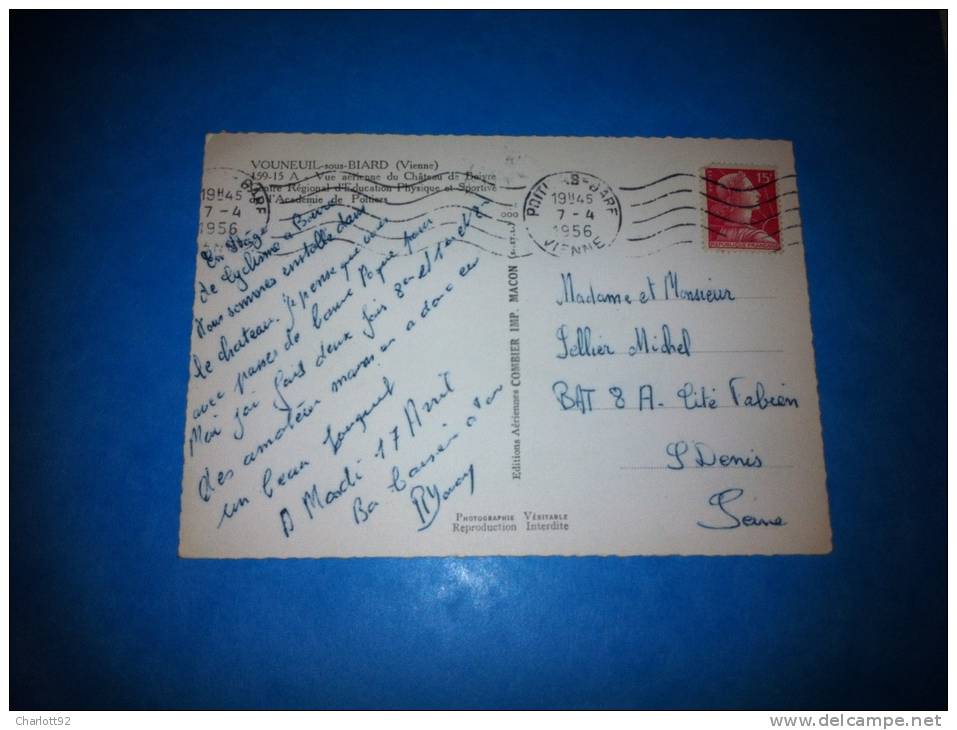 VOUNEUIL-sous-BIARD (Vienne)
159-15 A - Vue aérienne du Château de Boivre
Centre Régional d'Education Physique et Sportive
de l'Académie de Poitiers
-BARF
19H45
7-4
1956
En stage
de Cyclisme a
Nous sommes installé dans
le chateau. Je pense que vous
avez passes de bonne Paque pour
Moi j'ai fait deux fois 8em et
des amateur mais on a donc eu
un beau bouquet
A Mardi 17 Avril
Ba
Editions Aériennes COMBIER IMP. MACON
PHOTOGRAPHIE VÉRITABLE
Reproduction Interdite
POITI RS-BARF
19H45
7-4
1956
VIENNE
15F
REPUBLIQUE FRANCAISE
Madame et Monsieur
Pellier Michel
BAT 8 A. Cité Fabien
St Denis
Seine
Charlott92
http://www.delcampe.net